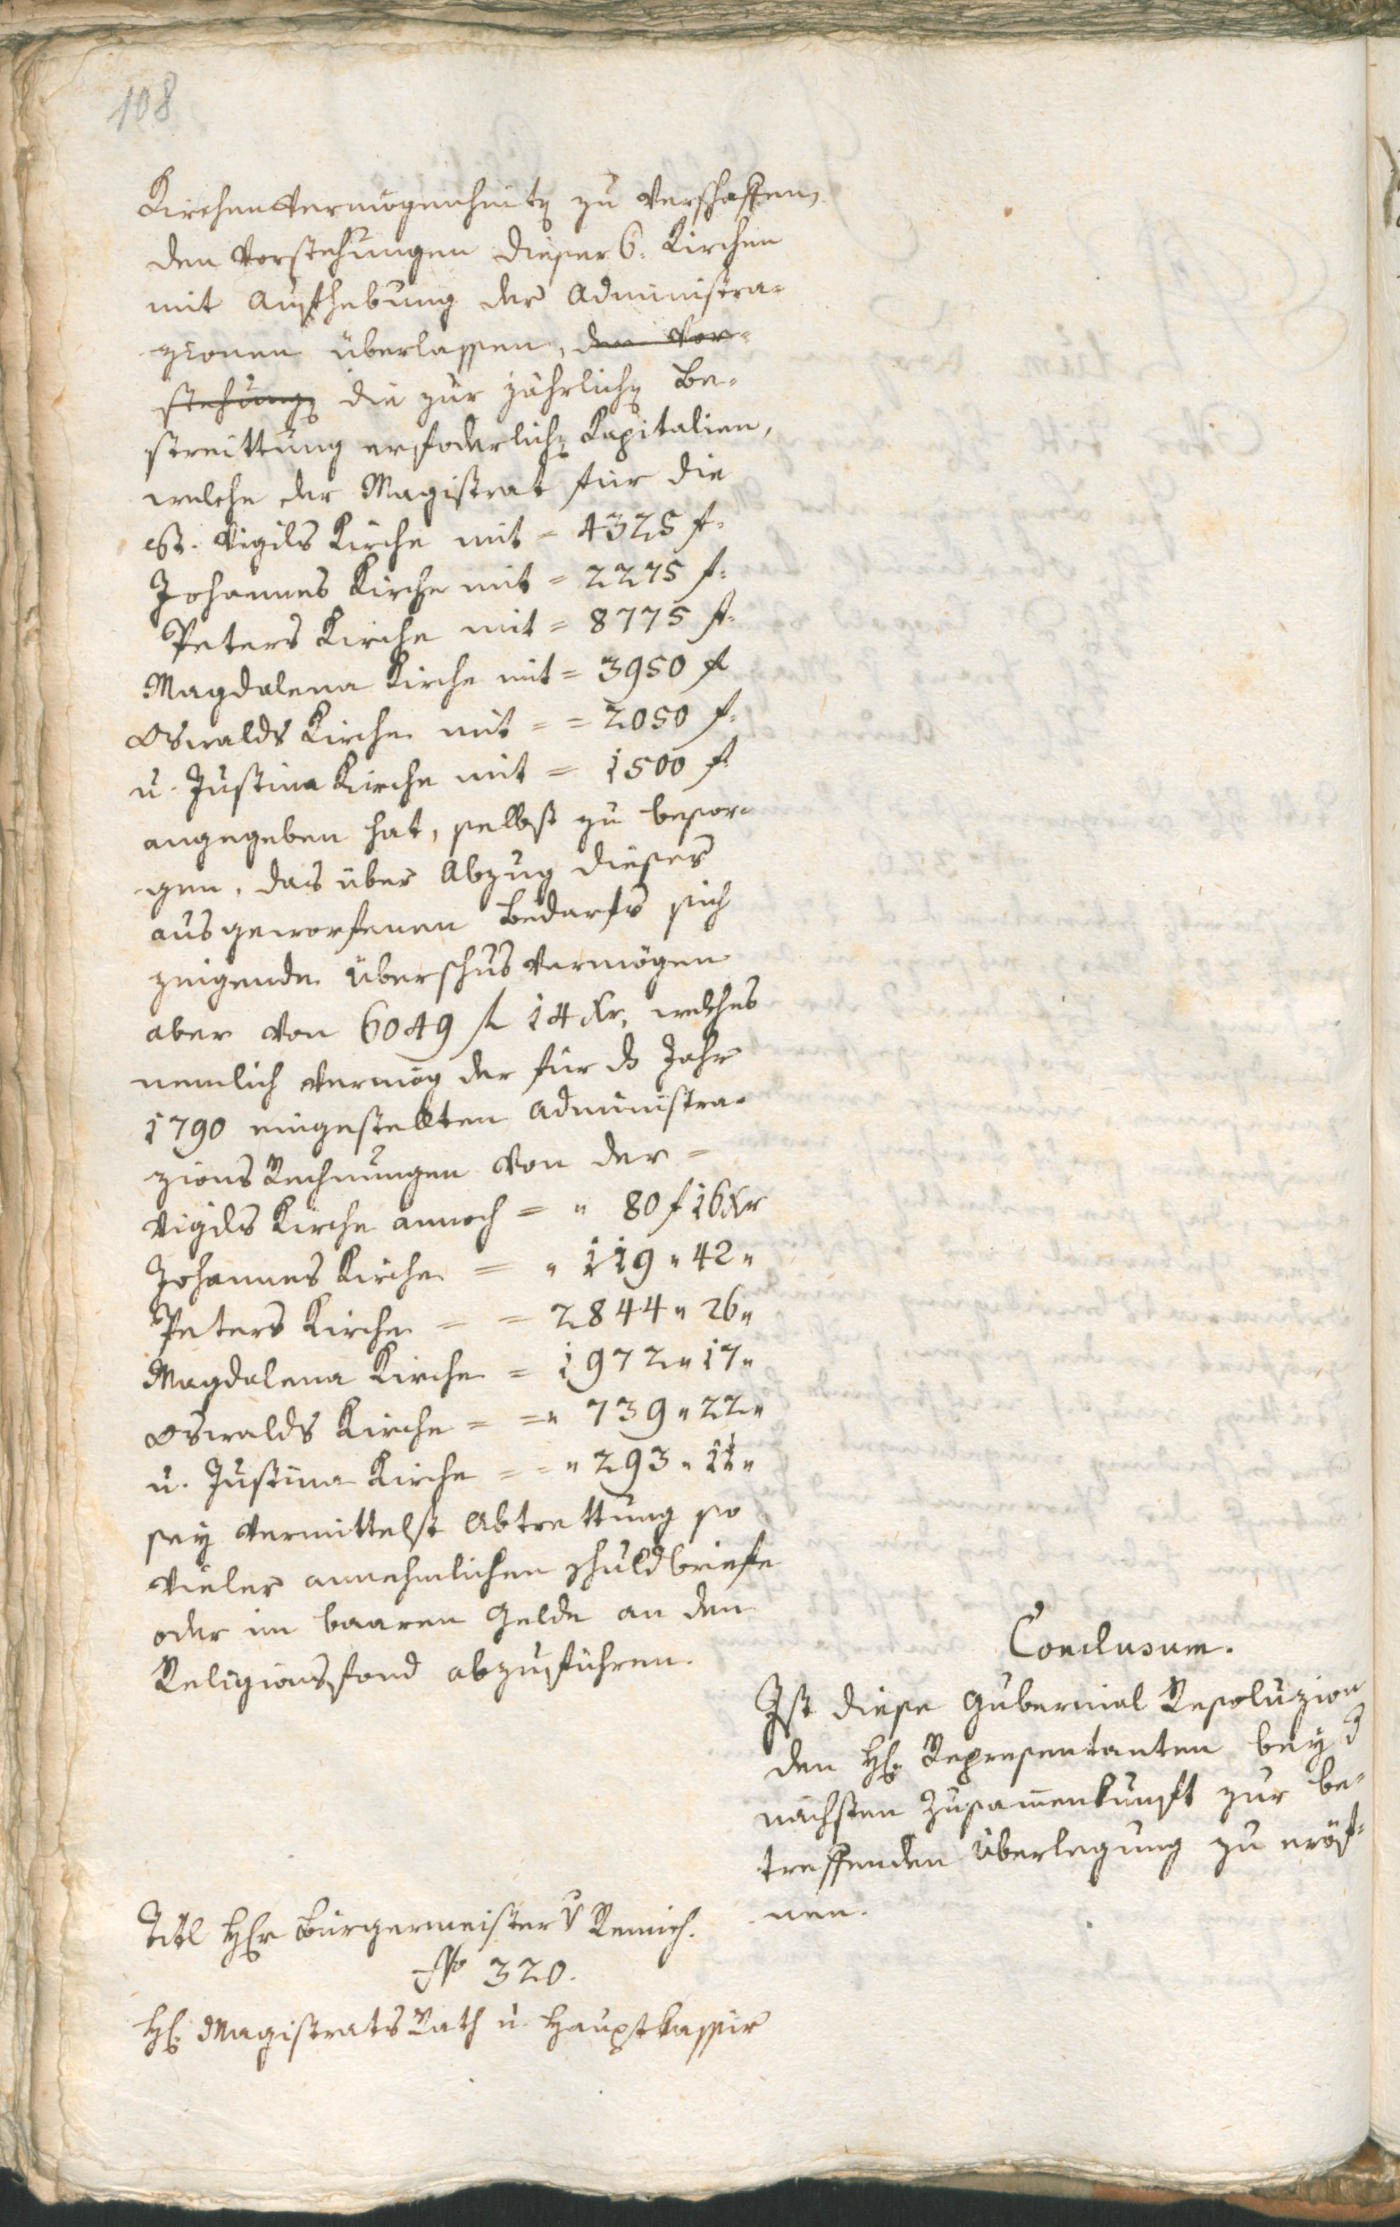 108
Kirchenvermögenheitē zu verschaffen,
den Vorstehungen dieser 6. Kirchen
mit Aufhebung der Administra-
zionen überlassen, den Vor-
stehungē die zur jährlichē Be-
streittung erfoderlichē Kapitalien,
welche der Magistrat für die
St. Vigils Kirche mit = 4325 f.
Johannes Kirche mit = 2275 f.
Peters Kirche mit = 8775 f.
Magdalena Kirche mit = 3950 f
Oswalds Kirche mit = = 2050 f.
u. Justina Kirche mit = 1500 f
angegeben hat, selbst zu besor-
gen, das über Abzug dieses
ausgeworfenen Bedarfs sich
zeigende Überschus Vermögen
aber von 6049 f 14 Xr, welches
nemlich vermög der für ds Jahr
1790 eingestellten Administra-
zions Rechnungen von der =
Vigils Kirche annoch = " 80 f 16 Xr
Johannes Kirche = " 119 " 42 "
Peters Kirche = = 2844 " 26 "
Magdalena Kirche = 1972 " 17 "
Oswalds Kirche = = " 739 " 22 "
u. Justina Kirche = = " 293 " 11 "
sey vermittelst Abtrettung so
vieler annehmlichen Schuldbriefe
oder im baaren Gelde an den
Religionsfond abzuführen.
Conclusum.
Ist diese Gubernial Resoluzion
den H. Representanten bey d
nächsten Zusam̄enkunft zur be-
treffenden Überlegung zu eröf-
nen.
Titl Hr Bürgermeister v Remich.
No 320.
H. Magistrats Rath u. Hauptkassier